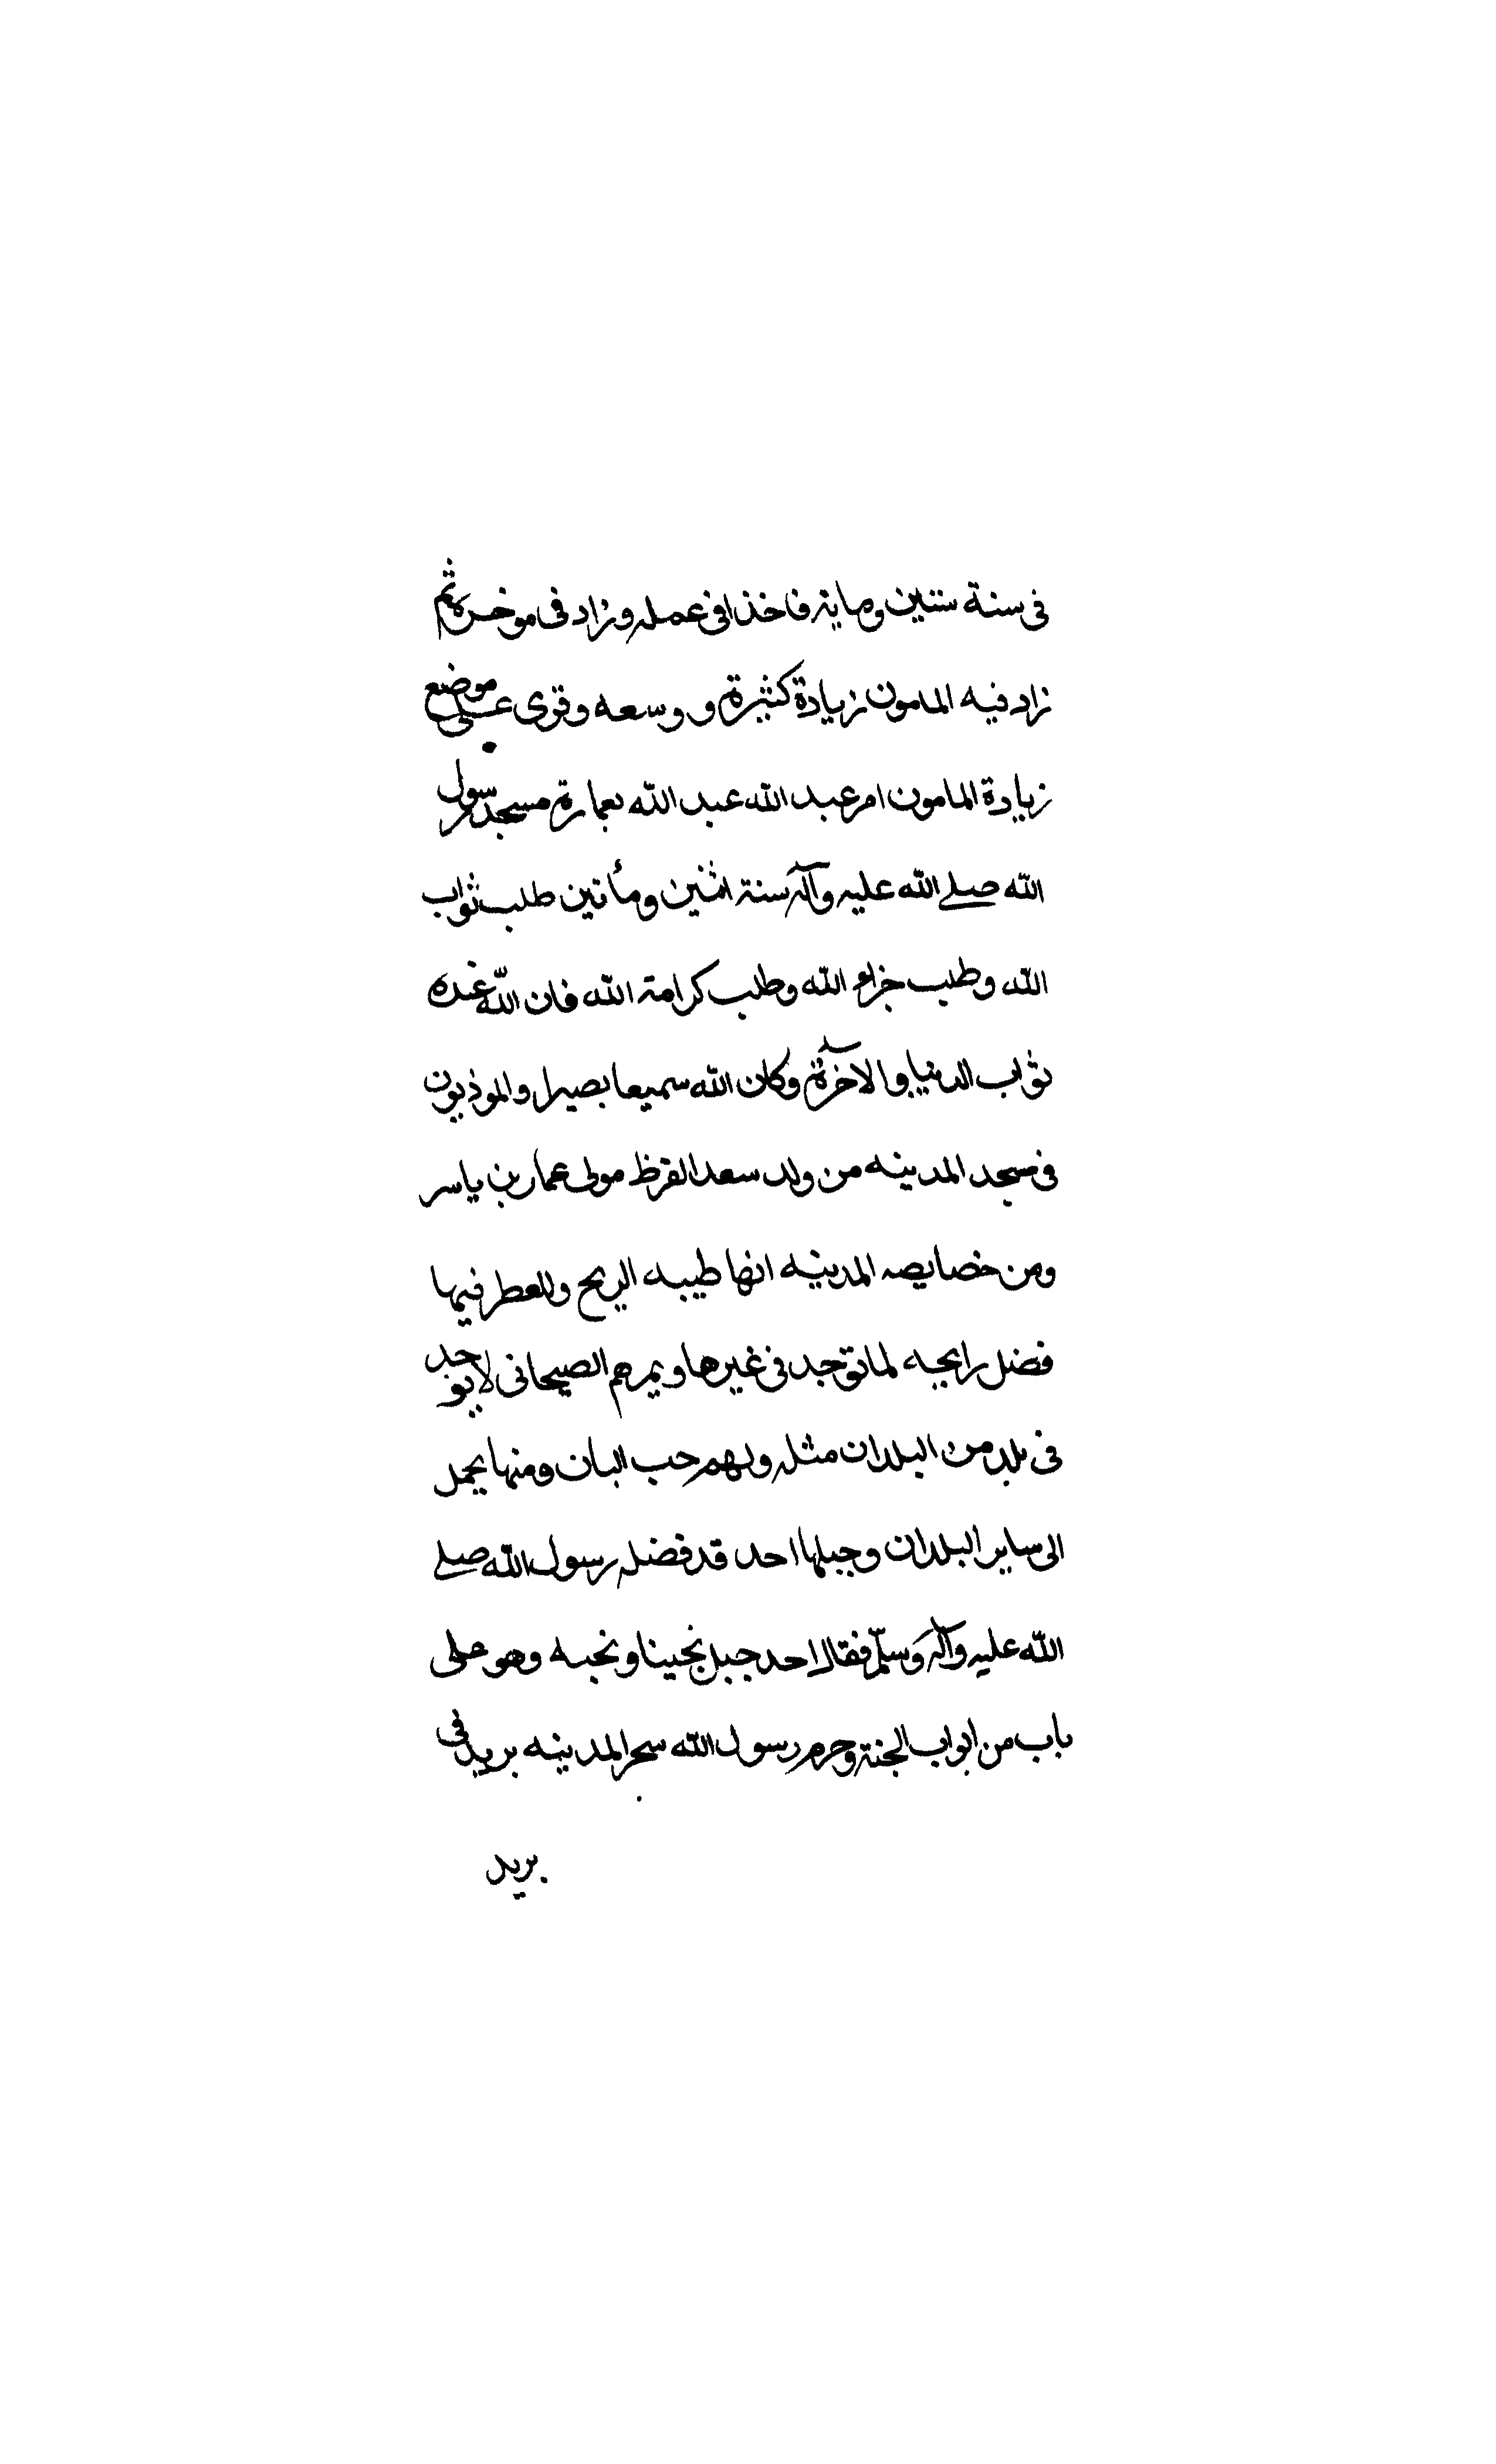 فى سنة ستين وماية فاخذا فى عمله وزاد فى موخره ثم
زاد فيه المامون زيادة كثيرة و ووسعه وقرى على موضع
زيادة المامون امر عبد الله عبد الله بعمارة مسجد رسول
الله صلے الله عليه وآله سنة اثنين ومأتين طلب ثواب
الله وطلب جزاء الله وطلب كرامة الله فان الله عنده
ثواب الدنيا والآخرة وكان الله سميعا بصيرا والموذنون
فى مسجد المدينه من ولد سعد القرظ مولى عمار بن ياسر
ومن خصايصه المدينه انها طيبه الريح وللعطر فيها
فضل رايحه لما توجد فى غيرها وتمرهم الصيحانى لا يوجد
فى بلد من البلدان مثله ولهم حب البان ومنها يحمل
الى ساير البلدان وجبلها احد قد فضله رسول الله صلے
الله عليه وآله وسلّم فقال احد جبل يحبنا ونحبه وهو على
باب من ابواب الجنة وحرم رسول الله شجر المدينه بريد فى
بريد